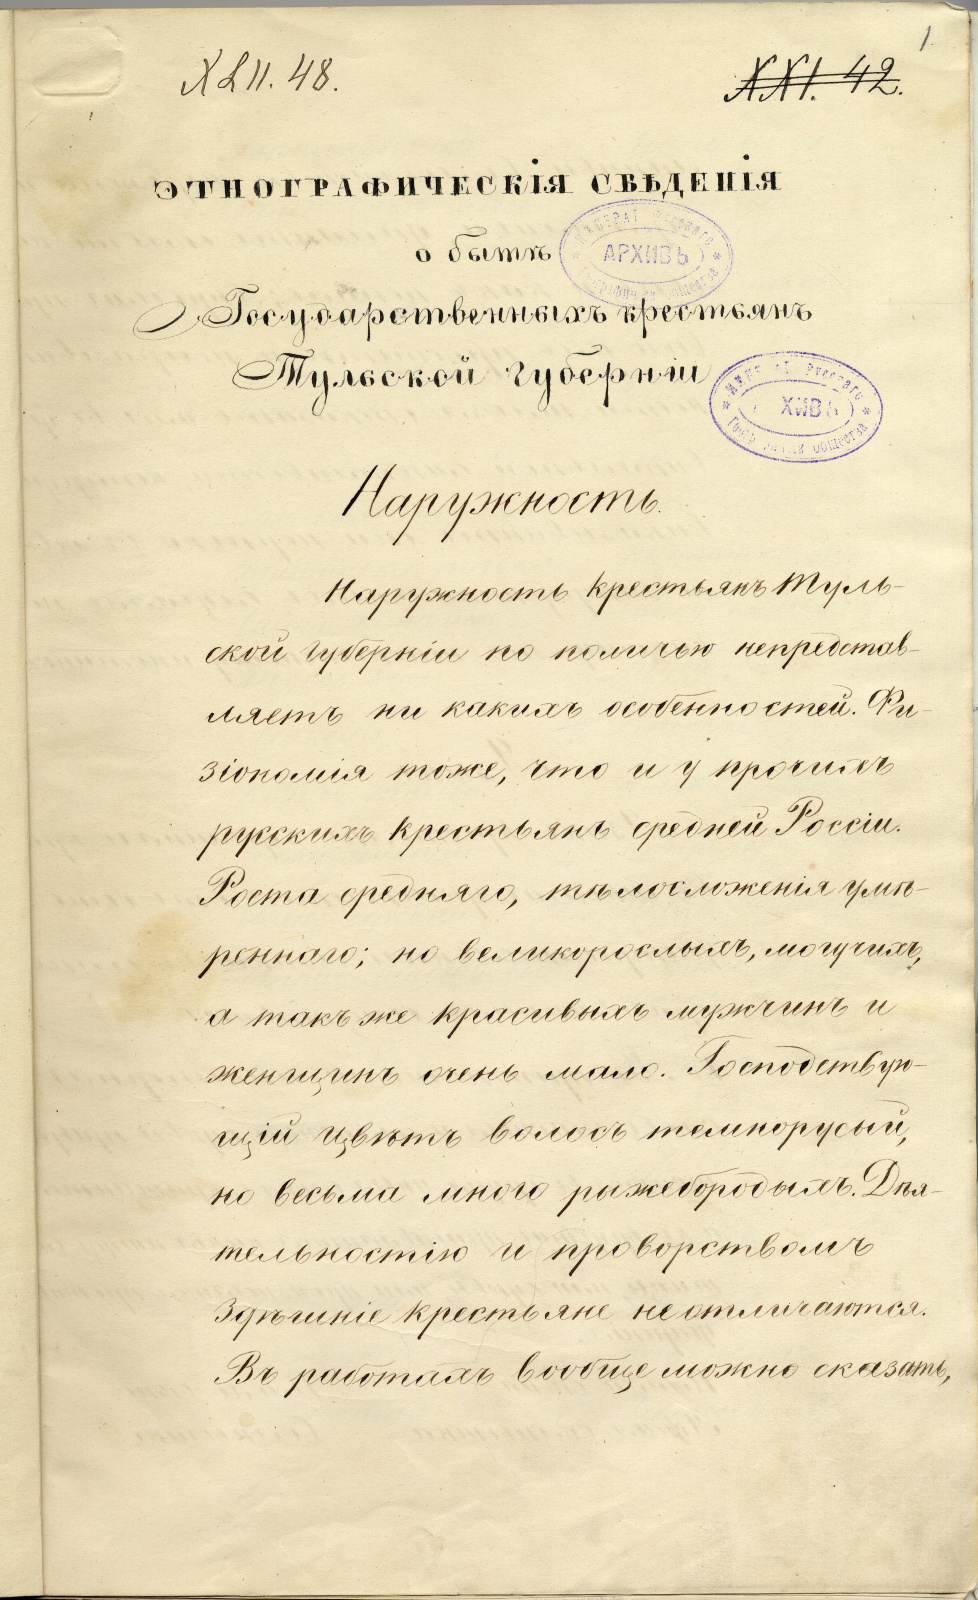 1
XLII. 48.
XXI. 42.
ЭТНОГРАФИЧЕСКІЯ СВѢДЕНІЯ
о бытѣ
Государственныхъ крестьянъ
Тульской губерніи
ИМПЕРАТ. Русскаго
АРХИВЪ
Общества
Русскаго
ХИВЪ
Общества
Наружность.
Наружность крестьянъ Туль-
ской губерніи по поличью непредстав-
ляетъ ни какихъ особенностей. Фи-
зіономія тоже, что и у прочихъ
русскихъ крестьянъ средней Россіи.
Роста средняго, тѣлосложенія умѣ-
реннаго; но великорослыхъ, могучихъ,
а такъ же красивыхъ мужчинъ и
женщинъ очень мало. Господствую-
щій цвѣтъ волосъ темнорусый,
но весьма много рыжебородыхъ. Дѣя-
тельностію и проворствомъ
здѣшніе крестьяне не отличаются.
Въ работахъ вообще можно сказать,